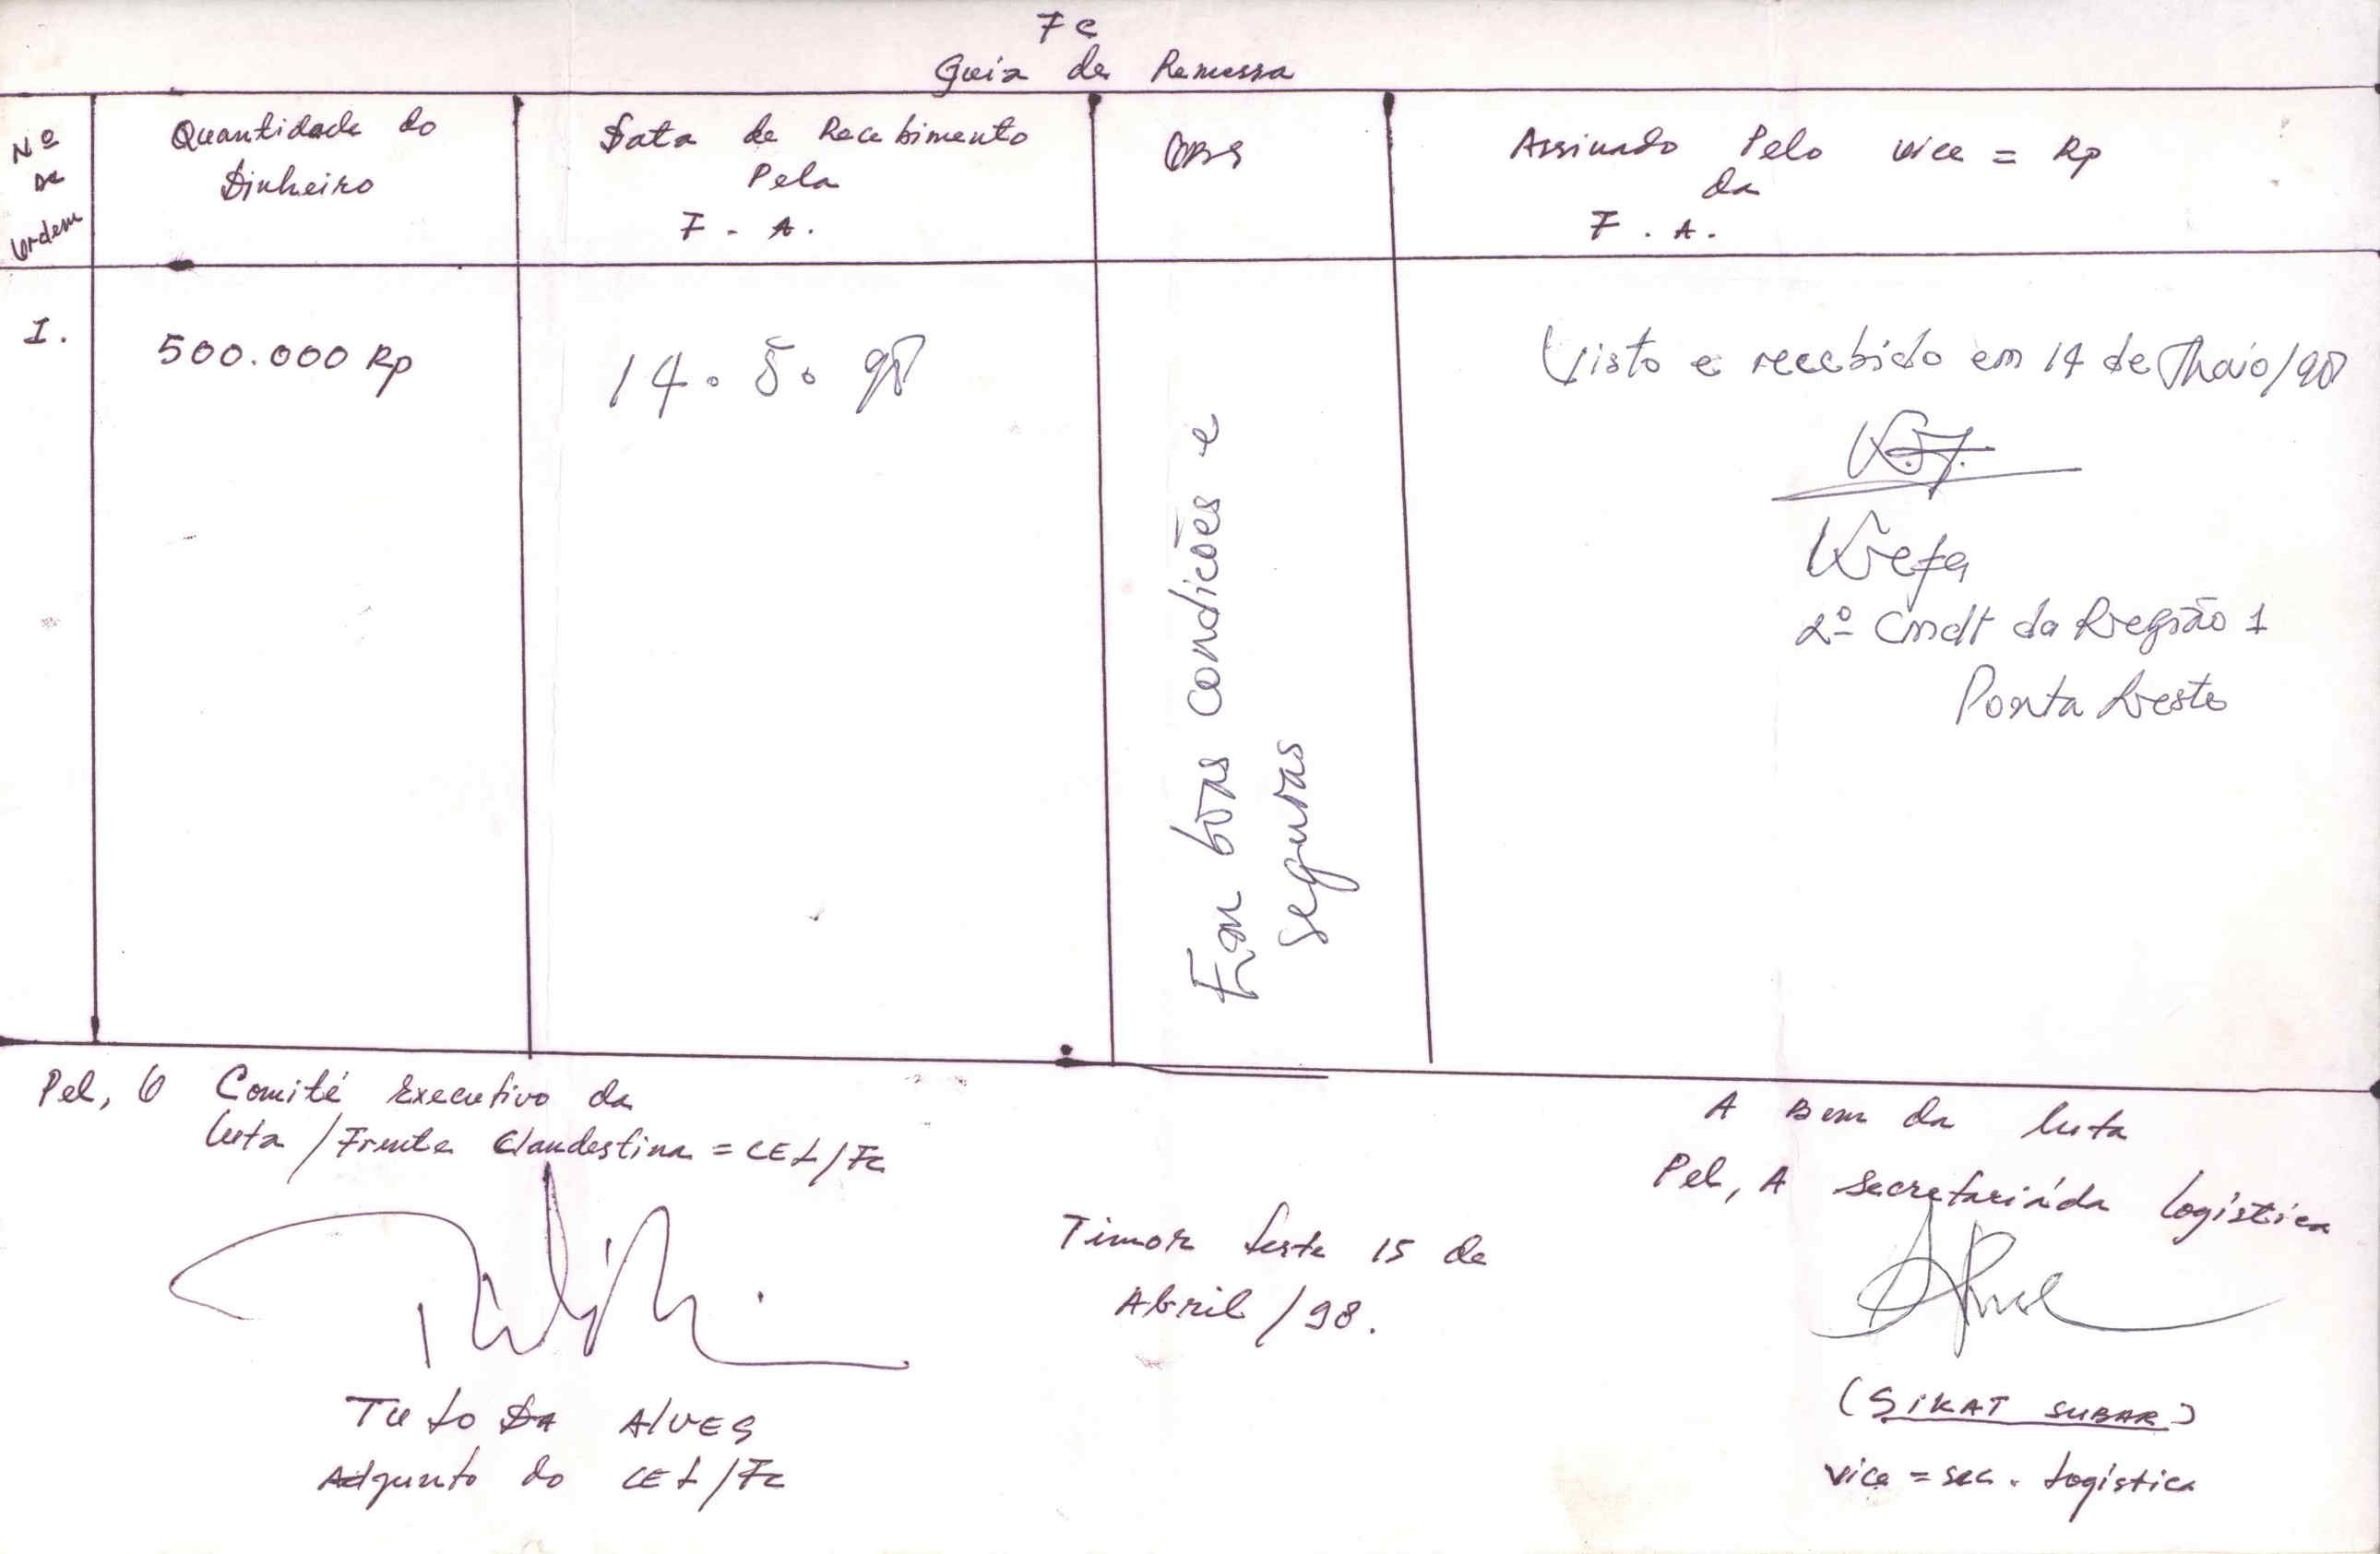 FC
Guia de Remessa
Nº
De
Ordem
Quantidade do
Dinheiro
Data de Recebimento
Pela
F. A.
OBS
Assinado Pelo vice = Rp
da
F. A.
I.
500.000 Rp
14. 5. 98
Em bõas condições e
seguras
Visto e recebido em 14 de Maio/98
Lefa
2º Cmdt da Região 1
Ponta Leste
Pel, O Comité Executivo da
luta / Frente Clandestina = CEL/FC
Tuto DA Alves
Adjunto do CEL/FC
Timor Leste 15 de
Abril / 98.
A Bem da luta
Pel, A Secretariáda Logística
(SIKAT SUBAR)
vice = sec. Logística